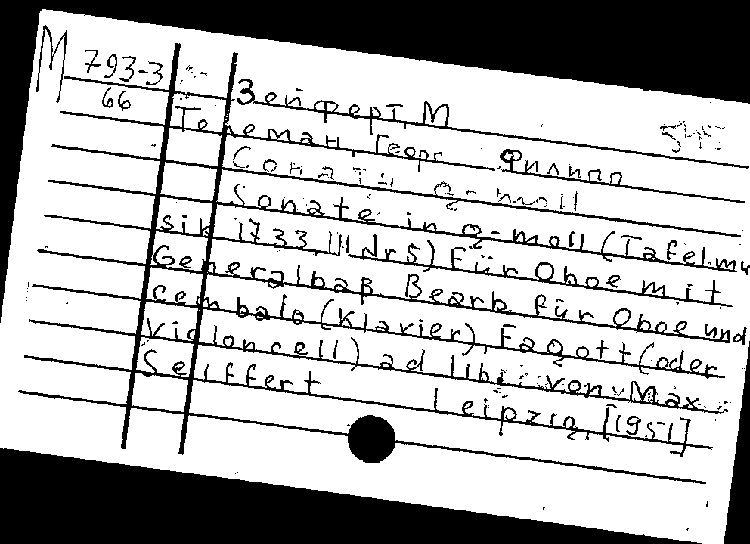 M 793-3
66
Зейферт, М
Телеман, Георг Филипп
Соната g-moll
Sonate in g-moll (Tafelmu
sik 1733, III Nr 5) Für Oboe mit
Generalbaß Bearb für Oboe und
cembalo (Klavier), Fagott (oder
violoncell) ad lib. von Max
Seiffert Leipzig, [1951]